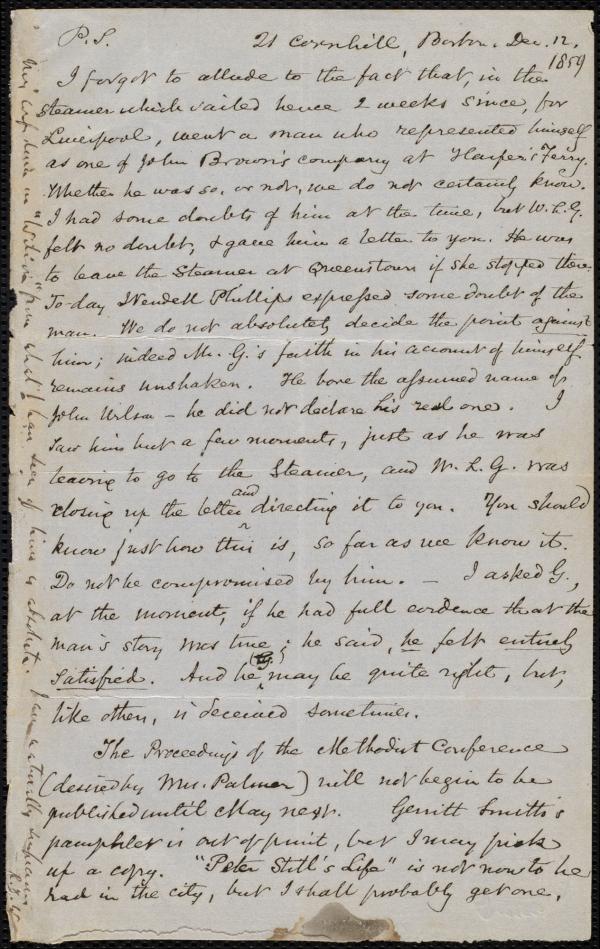 P.S. 21 Cornhill, Boston. Dec. 12,
1859
I forgot to allude to the fact that, in the
Steamer which sailed hence 2 weeks since, for
Liverpool, went a man who represented himself
as one of John Brown's company at Harper's Ferry.
Whether he was so, or not, we do not certainly know.
I had some doubts of him at the time, but W.L.G.
felt no doubt, & gave him a letter to you. He was
to leave the Steamer at Queenstown if she stopped there.
To-day Wendell Phillips expressed some doubt of the
man. We do not absolutely decide the point against
him; indeed Mr. G.'s faith in his account of himself
remains unshaken. He bore the assumed name of
John Wilson – he did not declare his real one. I
saw him but a few moments, just as he was
leaving to go to the Steamer, and W.L.G. was
closing up the letter and directing it to you. You should
know just how this is, so far as we know it.
Do not be compromised by him. – I asked G.,
at the moment, if he had full evidence that the
man's story was true; he said, he felt entirely
satisfied. And he (G.) may be quite right, but,
like others, is deceived sometimes.
The Proceedings of the Methodist Conference
(desired by Mrs. Palmer) will not begin to be
published until May next. Gerritt Smith's
pamphlet is out of print, but I may pick
up a copy. "Peter Still's Life" is not now to be
had in the city, but I shall probably get one.
My confidence in "Wilson" from what I have seen of him is absolute.